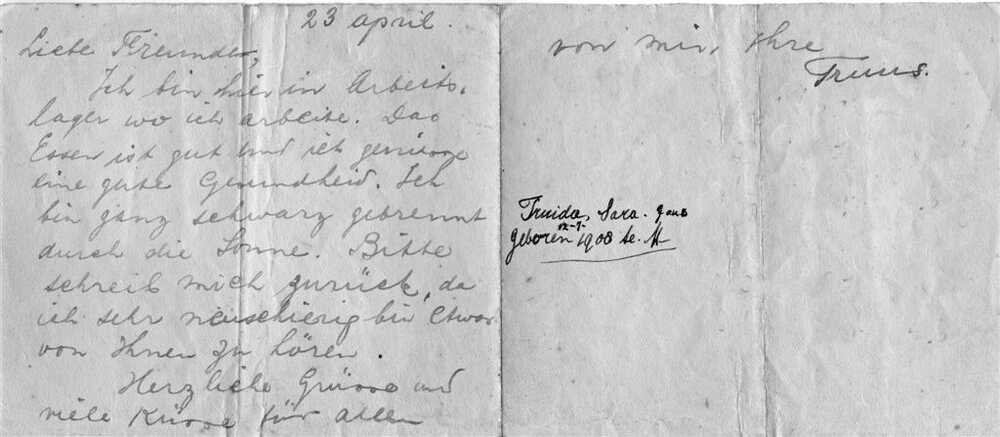 23 april.
Liebe Freunden,
Ich bin hier in Arbeits-
lager wo ich arbeite. Das
Essen ist gut und ich geniesse
eine gute Gesundheid. Ich
bin ganz schwarz gebrennt
durch die Sonne. Bitte
schreib mich zurück, da
ich sehr neuschierig bin Etwas
von Ihnen zu hören.
Herzliche Grüsse und
viele Küsse für allen
von mir, Ihre
Truus.
Truida, Sara.
geboren 1908 te.